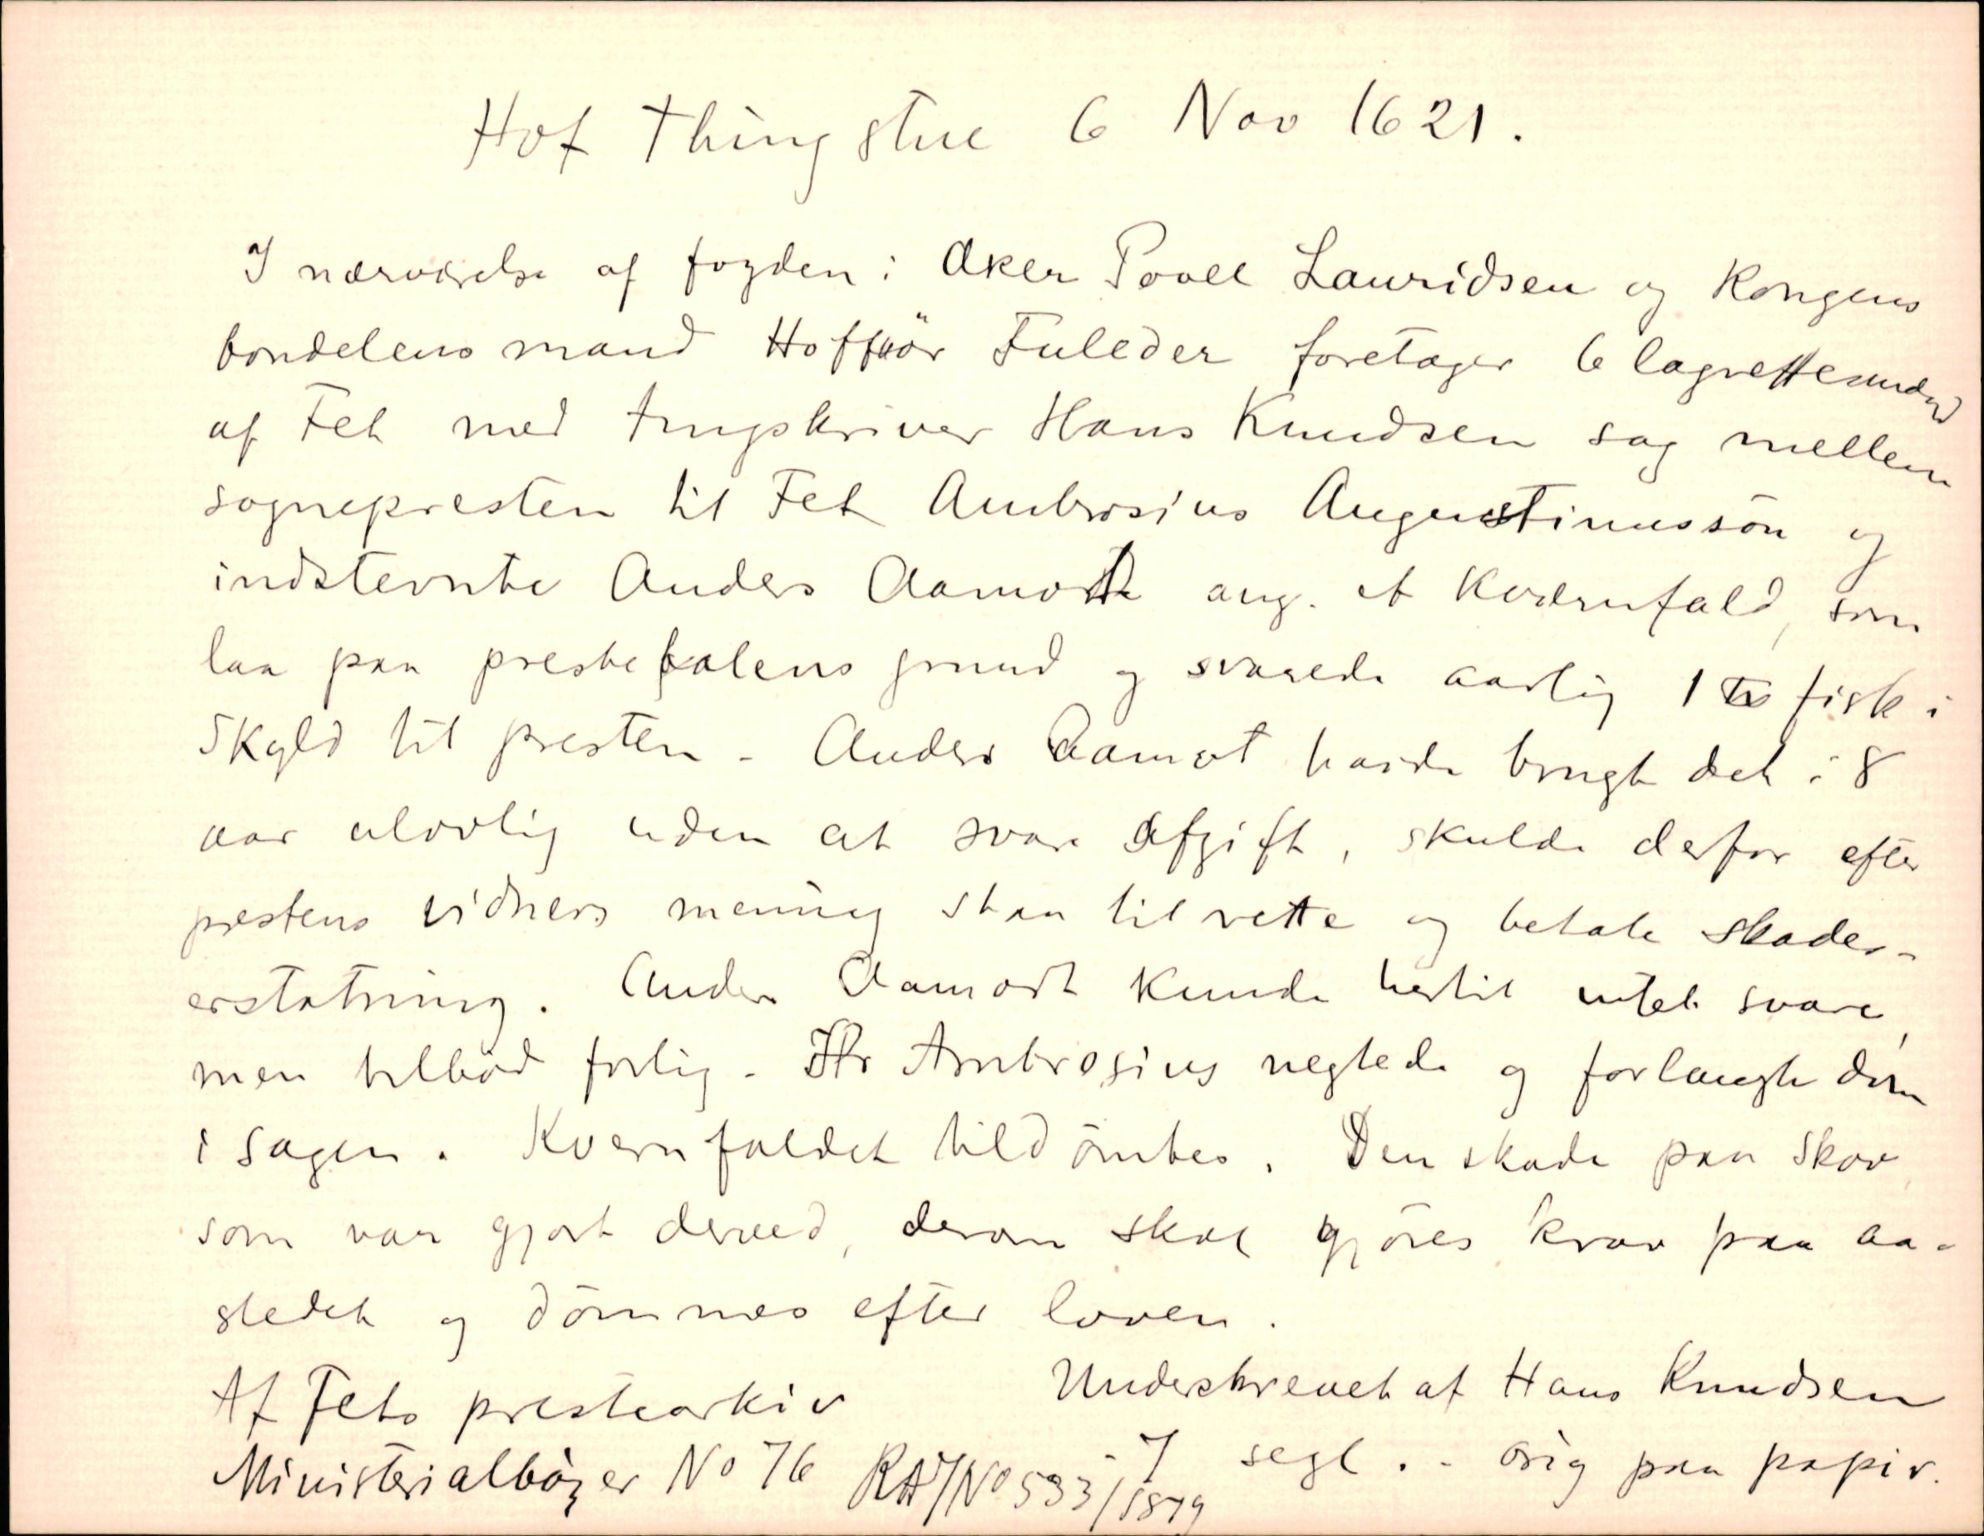 Hof Thingstue 6 Nov 1621.
I nærværelse af fogden i Aker Povel Lauridsen og Kongens
bondelensmand Hoffvör Fuleder foretager 6 lagrettesmænd
af Fet med tingskriver Hans Knudsen sag mellem
sognepresten til Fet Ambrosius Augustinussön og
indstevnte Anders Aamodt ang. et Kværnfald, som
laa paa prestebolens grund og svarede aarlig 1 fisk i
Skyld til presten. Anders Aamot havde brugt det i 8
aar ulovlig uden at svare Afgift, skulde derfor efter
prestens vidners mening staa til rette og betale skades-
erstatning. Anders Aamodt kunde hertil intet svare,
men tilböd forlig. Hr Ambrosius negtede og forlangte dom
i sagen. Kvernfaldet tildömtes. Den skade paa Skov
som var gjort derved, derom skal gjöres krav paa aa-
stedet og dömmes efter loven.
Af Fets prestearkiv Underskrevet af Hans Knudsen
Ministerialböger No 76 RA J No 533/1879 - 7 segl. - orig paa papir.